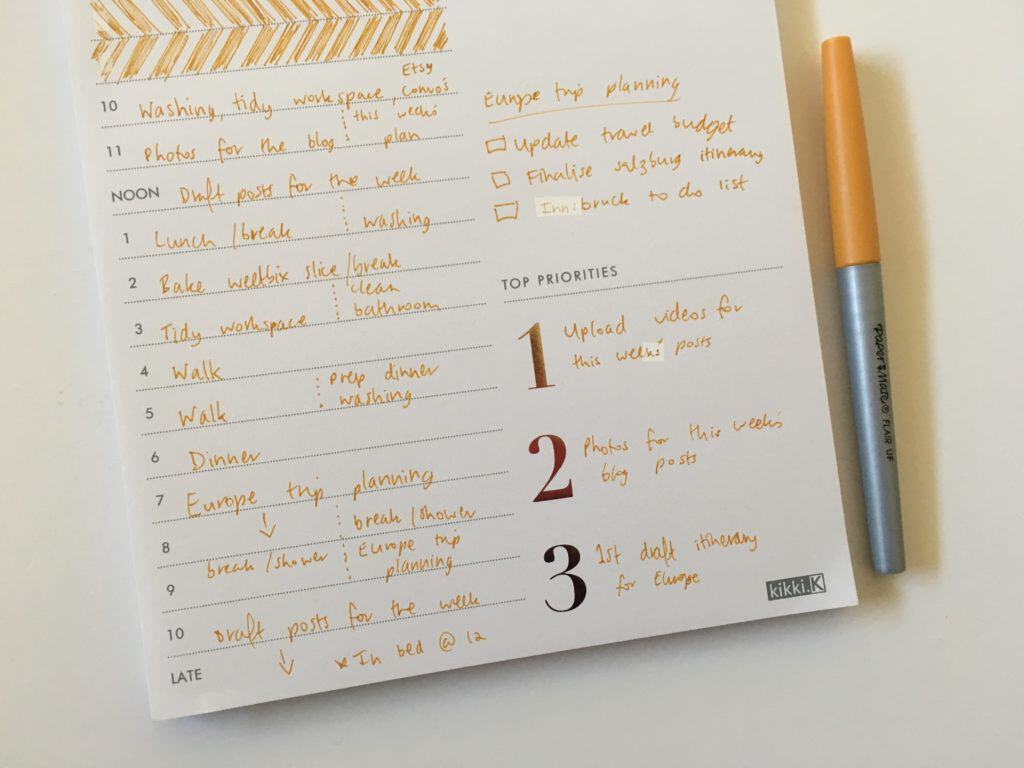 Etsy
10 Washing, tidy workspace, convo's
this weeks'
11 Photos for the blog plan
NOON Draft posts for the week
1 Lunch /break washing
2 Bake weetbix slice /break
clean
3 Tidy workspace bathroom
4 Walk prep dinner
5 Walk washing
6 Dinner
7 Europe trip planning
break /shower
8 break /shower Europe trip
9 planning
10 Draft posts for the week
LATE * In bed @ 12
Europe trip planning
Update travel budget
Finalise salzburg itinerary
Innsbruck to do list
TOP PRIORITIES
1 Upload videos for
this weeks' posts
2 Photos for this weeks'
blog posts
3 1st draft itinerary
for Europe
kikki.K
PAPER MATE ® FLAIR UF